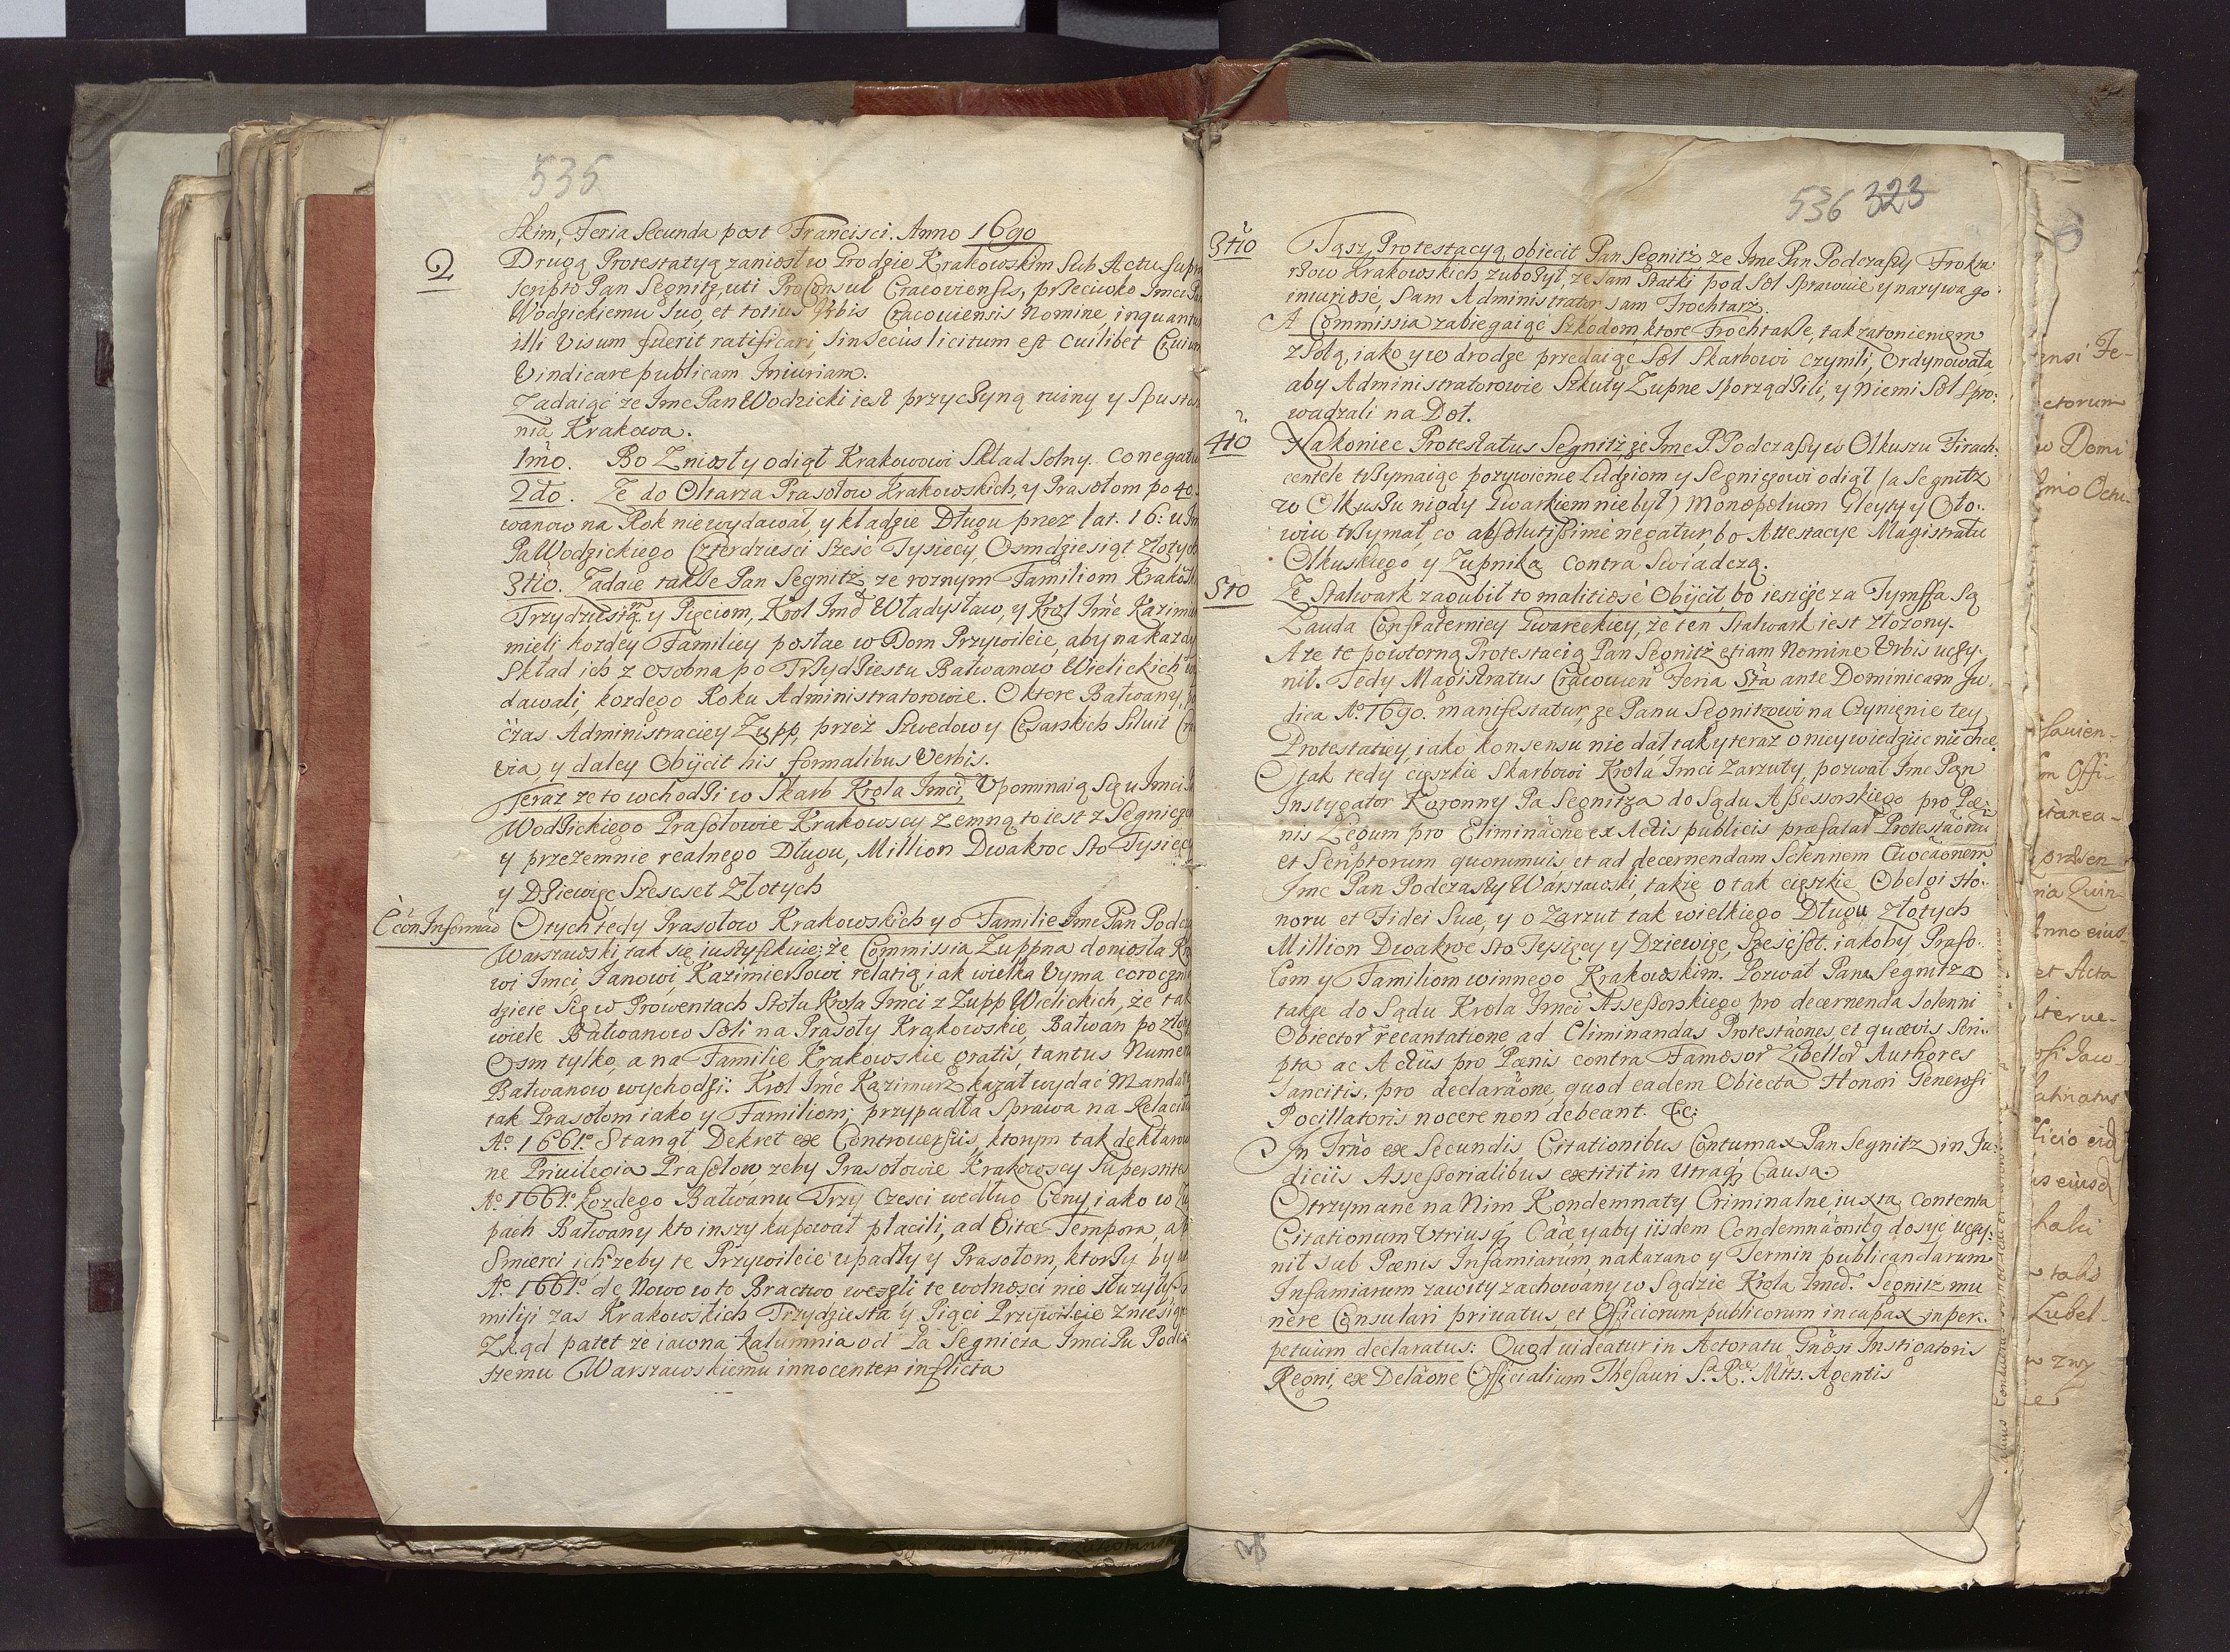 535
skim, Feria Secunda post Francisci. Anno 1690
2
Drugą Protestatyą zaniosł w Grodzie Krakowskim Sub Actu supra
scripto Pan Segnitz, uti ProConsul Cracoviensis, przeciwko Imci Pa
Wodzickiemu suo, et totius Urbis Cracoviensis Nomine, inquantu
illi Visum fuerit ratificari, sin Secus licitum est Cuilibet Civium
Vindicare publicam Iniuriam.
Zadaiąc ze Imc Pan Wodzicki iest przyczyną ruiny y Spustos
nia Krakowa.
1mo. Bo Zniosł y odiął Krakowowi Skład Solny. Co negatu
2do. Ze do Ołtarza Prasołow Krakowskich, y Prasołom po 40.
wanow na Rok nie wydawał, y kładzie Długu przez lat. 16: u Im
Pa Wodzickiego Czterdziesci Sześć Tysięcy, Osmdziesiąt Złotych
3tio. Zadaie takze Pan Segnitz, ze roznym Familiom Krakows
Trzydziestą y Pięciom, Krol Imd Władysław, y Krol Imc Kazimi
mieli kozdey Familiey postae w Dom Przywileie, aby na kazdy
Skład ich z osobna po Trzydziestu Bałwanow Wielickich wy
dawali, kozdego Roku Administratorowie. O ktore Bałwany,
czas Administraciey Zupp, przez Szwedow y Cesarskich Siluit Cra
via, y daley Obijcit his formalibus Verbis.
Teraz, ze to wchodzi w Skarb Krola Imci, Upominaią Się u Imci
Wodzickiego Prasołowie Krakowscy zemną to iest z Segnicem
y przezemnie realnego Długu, Million Dwakroc Sto Tysięcy
y Dziewięc Szescset Złotych
Con Informao
O tych tedy Prasołow Krakowskich y o Familie Imc Pan Podcza
Warszawski, tak się iustyfikuie: że Commissia Zuppna doniosła Kro
wi Imci, Janowi, Kazimierzowi relatią, iak wielka Uyma coroczni
dzieie Się w Prowentach Stołu Krola Imci z Zupp Wielickich, że tak
wiele Bałwanow Soli na Prasoły Krakowskie, Bałwan po złoty
Osm tylko, a na Familie Krakowskie gratis, tantus Numer
Bałwanow wychodzi: Krol Imc Kazimierz kazał wydać Mandaty
tak Prasołom iako y Familiom; przypadła Sprawa na Relacia
Ao. 1661o. Stanął Dekret ex Controversiis, ktorym tak deklarow
ne Privilegia Prasołow, zeby Prasołowie Krakowscy Superstites
Ao. 1661o. kozdego Bałwanu Trzy Czesci według Ceny, iako w Zu
pach Bałwany kto inszy kupował płacili, ad Vitæ Tempora, a p
Smierci ich zeby te Przywileie upadły y Prasołom, ktorzy by w
Ao. 1661o. de Novo w to Bractwo weszli te wolnosci nie słuzyły,
miliji zas Krakowskich Trzydziesta y Pięci Przywileie zniesion
Zkąd patet ze iawna Kalumnia od Pa Segnicza Imci Pu Podcza
szemu Warszawskiemu innocenter inflicta
536 323
3tio
Tąsz, Protestacyą obiecit Pan Segnitz ze Imc Pan Podczaszy Frokta
rzow Krakowskich zubożył, ze sam Statki pod Sol Sprawuie y nazywa go
iniuriosé, Sam Administrator sam Frochtarz.
A Commissia zabiegaiąc Szkodom, ktore Frochtarze, tak zatonieniem
z Solą, iako y w drodze przedaiąc Sol Skarbowi czynili, Ordynowała
aby Administratorowie Szkuty Zupne sporządzili, y niemi Sol Spro:
wadzali na Doł.
4to
Nakoniec Protestatus Segnitz że Imc P. Podczaszy w Olkuszu Firach:
centele trzymaiąc pozywienie Ludziom y Segnicowi odiął (a Segnitz
w Olkuszu nigdy Gwarkiem nie był) Monopolium Gleyty y Oło:
wiu trzymał, co absolutissime negatur, bo Attestacye Magistratu
Olkuskiego y Zupnika contra Swiadczą.
5to
Ze Stalwark zagubił to malitiosé Obijcit, bo ieszcze za Tymffa Są
Lauda Confraterniey Gwareckiey, że ten Stalwark iest złożony.
A ze te powtorną Protestacią Pan Segnitz etiam Nomine Urbis uczy:
nił. Tedy Magistratus Cracovien Feria 5ta ante Dominicam Ju:
dica Ao. 1690. manifestatur, ze Panu Segnitzowi na Czynienie tey
Protestatiey, iako konsensu nie dał, tak y teraz o niey wiedziec nie chce
O tak tedy cięszkie Skarbowi Krola Imci Zarzuty, pozwał Imc Pan
Instygator Koronny Pa Segnitza do Sądu Assessorskiego pro Pœ:
nis Legum pro Eliminäone ex Actis publicis præfatar Protestäonu
et Scriptorum quorumvis et ad decernendam Solennem Evocäonem
Imc Pan Podczaszy Warszawski, także o tak cięszkie Obelgi Ho:
noru et Fidei Suæ, y o Zarzut tak wielkiego Długu złotych
Million Dwakroc Sto Tysięcy y Dziewięc, Sześćset. iakoby Praso:
łom y Familiom winnego Krakowskim. Pozwał Pana Segnitza
także do Sądu Krola Imci Assessorskiego pro decernenda Solenni
Obiector recantatione ad Eliminandas Protestäones, et quævis Scri:
pta ac Actüs pro Pœnis contra Famosor Libellor Authores
Sancitis, pro declaräone, quod eadem Obiecta Honori Generosi
Pocillatoris nocere non debeant. &c:
In Trno ex Secundis Citationibus Contumax Pan Segnitz in Ju:
diciis Assessorialibus extitit in Utraq Causa.
Otrzymane na Nim Kondemnaty Criminalne, iuxta Contenta
Citationum Utriusq Cäæ, y aby iisdem Condemnäonibq dosyc uczy:
nił sub Pœnis Infamiarum, nakazano y Termin publicandarum
Infamiarum zawity zachowany w Sądzie Krola Imcd. Segnitz mu
nere Consulari privatus, et Officiorum publicorum incapax in per:
petuum declaratus: Quod videatur in Actoratu Gnösi Instigatoris
Regni, ex Deläone Officialium Thesauri S. R. Mtts. Agentis
ensi Fe-
ctorum
w Domi
Octu-
Offi
itanea-
Anno eius
et Acta
Lubel-